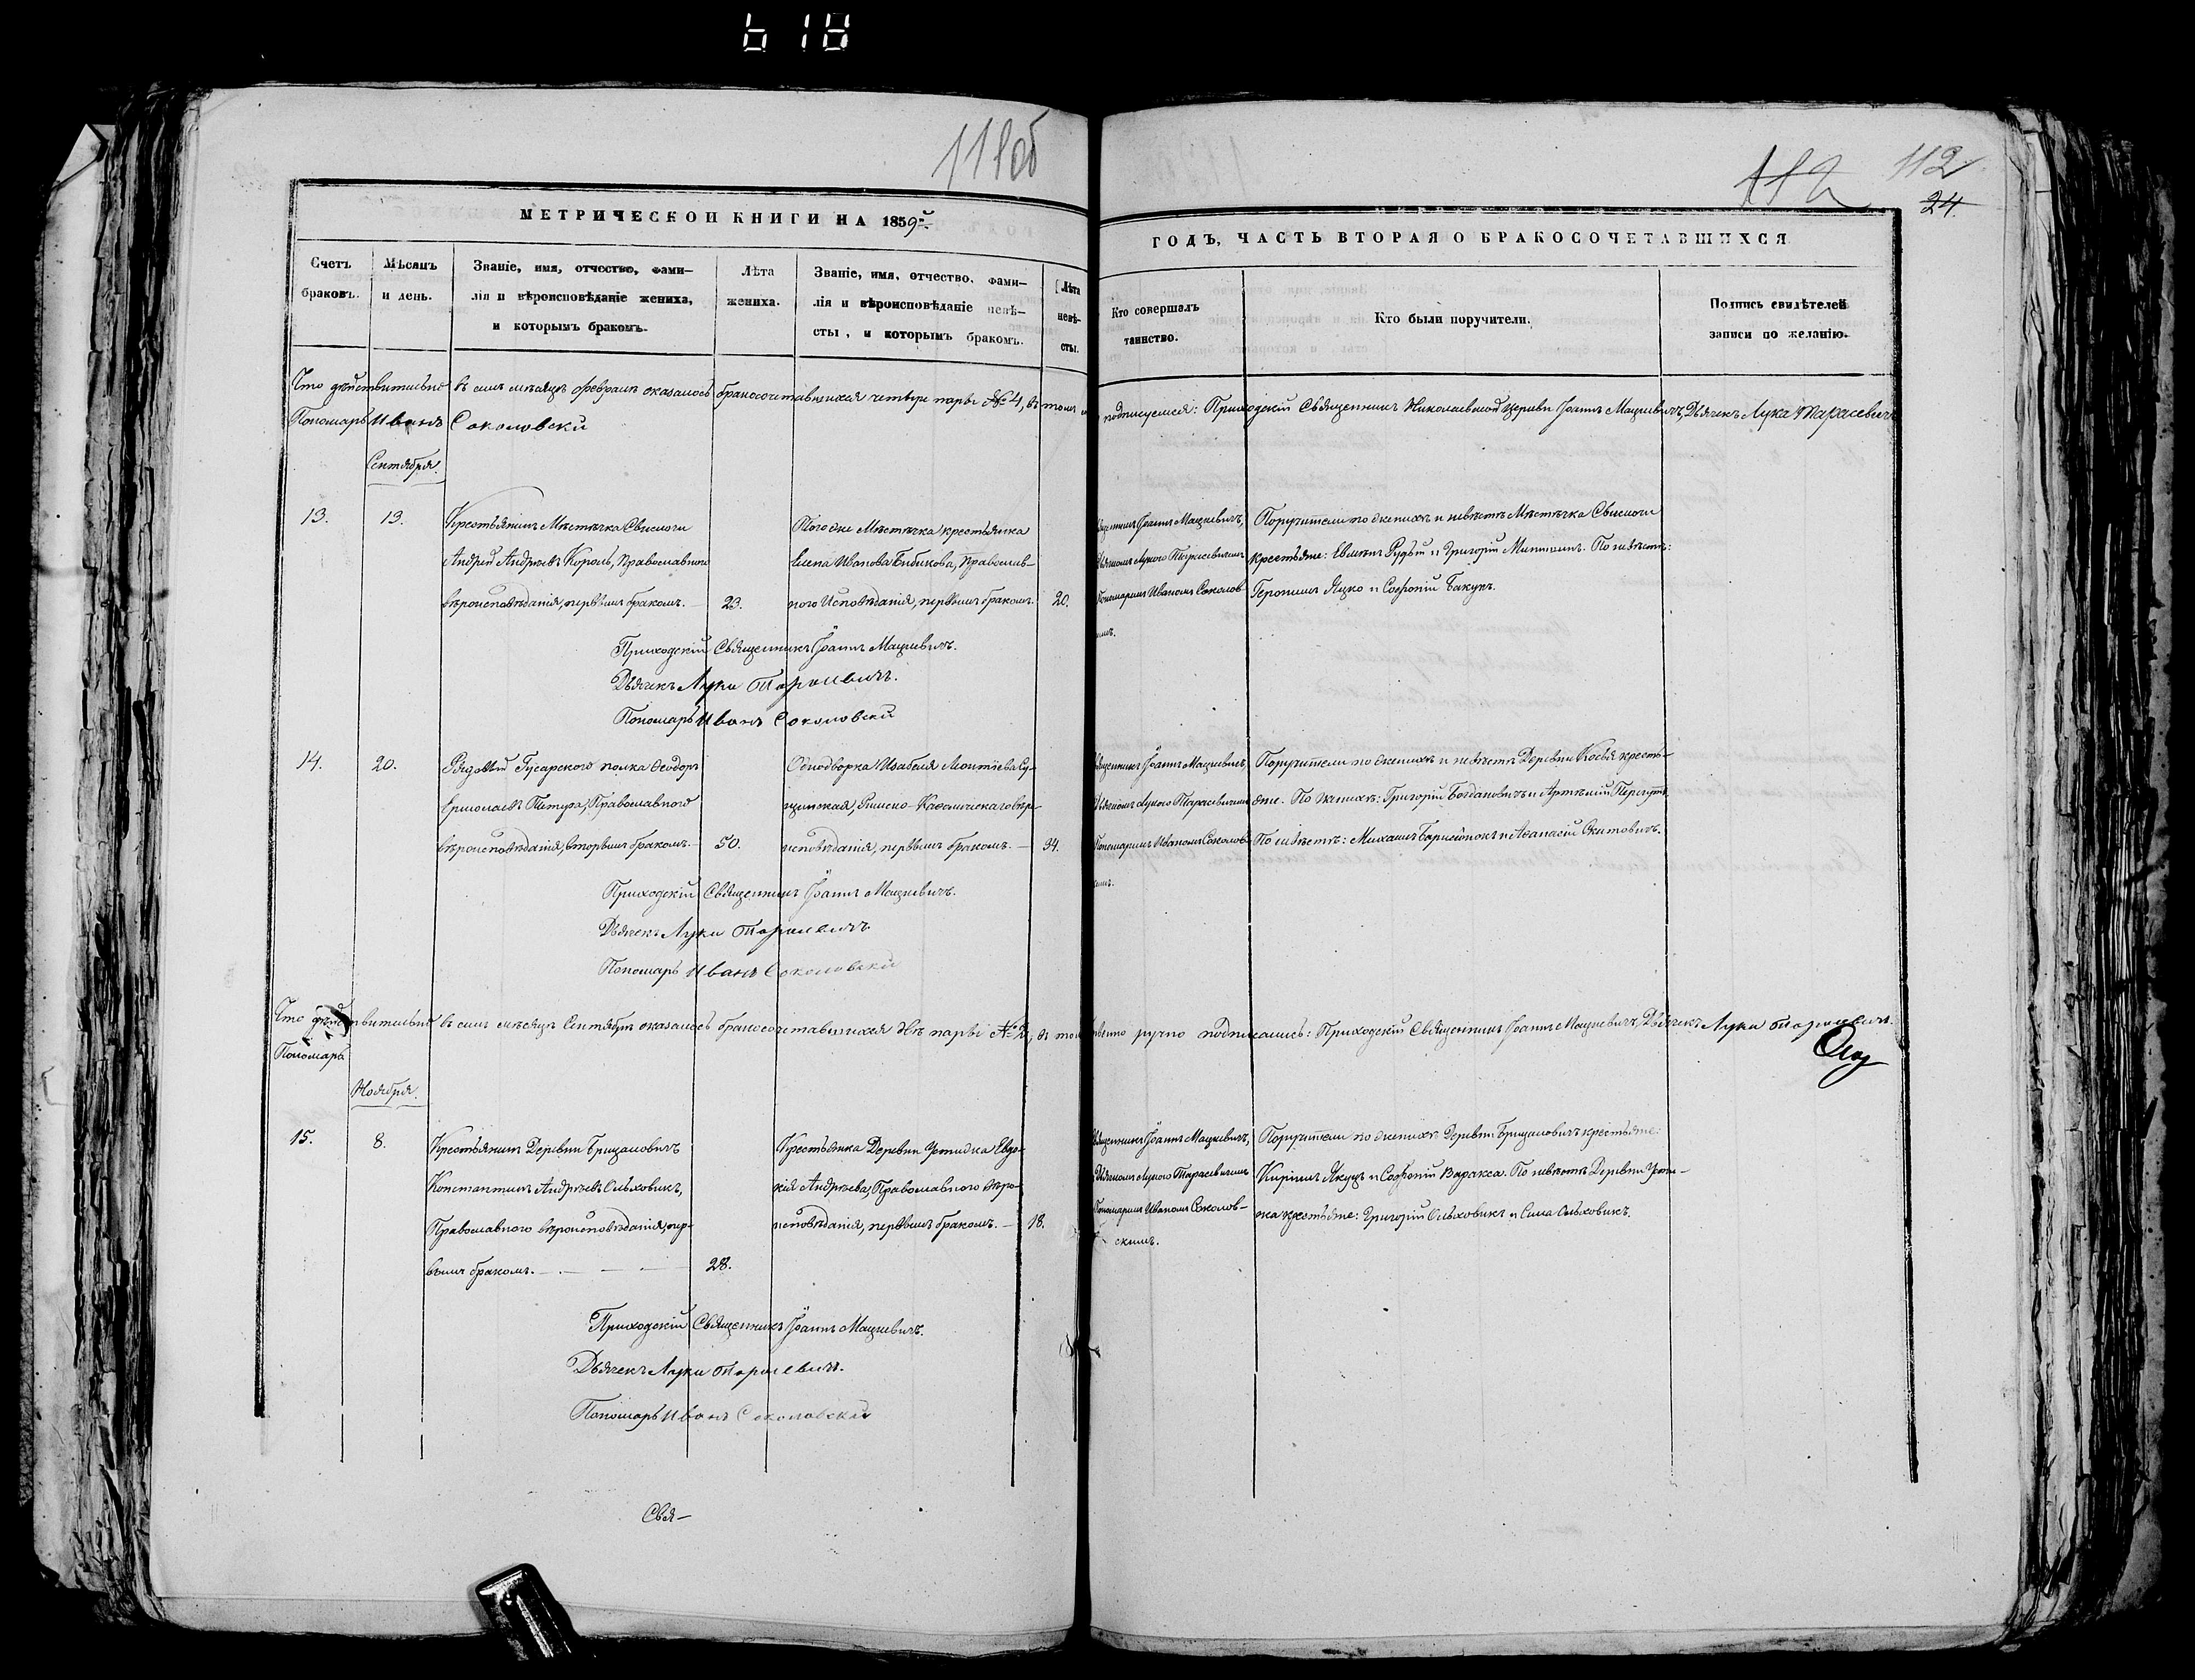 111об
112
112
24.
МЕТРИЧЕСКОЙ КНИГИ НА 1859й
ГОДЪ, ЧАСТЬ ВТОРАЯ О БРАКОСОЧЕТАВШИХСЯ
Счетъ
браковъ.
Мѣсяцъ
и день.
Званіе, имя, отчество, фами-
лія и вѣроисповѣданіе жениха,
и которымъ бракомъ.
Лѣта
жениха.
Званіе, имя, отчество, фами-
лія и вѣроисповѣданіе невѣ-
сты, и которымъ бракомъ.
Лѣта
невѣ-
сты.
Кто совершалъ
таинство.
Кто были поручители.
Подпись свидѣтелей
записи по желанію.
Что дѣйствительно въ семъ мѣсяцѣ февралѣ оказалось бракосочетавшихся четыре пары № 4, въ томъ и подписуемся: Приходскій Священникъ Николаевской церкви Іоаннъ Мацкевичъ, Дьячекъ Лука Тарасевичъ
Пономарь Иванъ Соколовскй
Сентября.
13.
13.
Крестьянинъ Мѣстечка Свислочи
Андрей Андреевъ Король, Православнаго
вѣроисповѣданія, первымъ бракомъ. —
23.
Того же Мѣстечка крестьянка
Елена Иванова Бибикова, Православ-
ного Исповѣданія, первымъ бракомъ.
20.
Іоаннъ Мацкевичъ,
Лукою Тарасевичемъ
Пономаремъ Иваномъ Соколов
Поручители по женихѣ и невѣстѣ Мѣстечка Свислочи
крестьяне: Рудый и Григорій По невѣстѣ:
Геронимъ Яцко и Софроній Бакунъ.
Приходскій Священникъ Іоаннъ Мацкевичъ.
Дьячекъ Лука Тарасевичъ.
Пономарь Иванъ Соколовскй
14.
20.
Рядовый Гусарского полка Ѳеодоръ
Ермолаевъ Петура, Православного
вѣроисповѣданія, вторымъ бракомъ. —
50.
Однодворка Изабеля Су-
Римско-Католическаго вѣро-
исповѣданія, первымъ бракомъ. —
34.
Іоаннъ Мацкевичъ,
Лукою Тарасевичемъ
Пономаремъ Иваномъ Соколов
Поручители по женихѣ и невѣстѣ Деревни Косья кресть-
яне. По женихѣ: Григорій Богдановичъ и Артемій
По невѣстѣ: Михаилъ и Аѳанасій
Приходскій Священникъ Іоаннъ Мацкевичъ.
Дьячекъ Лука Тарасевичъ
Пономарь Иванъ Соколовскй
Что дѣйствительно въ семъ мѣсяцѣ Сентябрѣ оказалось бракосочетавшихся двѣ пары № 2, въ томъ ручно подписались: Приходскій Священникъ Іоаннъ Мацкевичъ, Дьячекъ Лука Тарасевичъ.
Пономарь
Ноября.
15.
8.
Крестьянинъ Деревни Брицаловичъ
Константинъ Андреевъ Ольховикъ,
Православного вѣроисповѣданія, пер-
вымъ бракомъ. —
28.
Крестьянка Деревни Устижа Евдо-
кія Андреева, Православного вѣро-
исповѣданія, первымъ бракомъ. —
18.
Іоаннъ Мацкевичъ,
Лукою Тарасевичемъ
Пономаремъ Иваномъ Соколов-
скимъ.
Поручители по женихѣ Деревни Брицаловичъ крестьяне:
Кирилъ Якушъ и Софроній Варакса. По невѣстѣ Деревни
крестьяне: Григорій Ольховикъ и Сила Ольховикъ.
Приходскій Священникъ Іоаннъ Мацкевичъ.
Дьячекъ Лука Тарасевичъ.
Пономарь Иванъ Соколовскй
Свя-